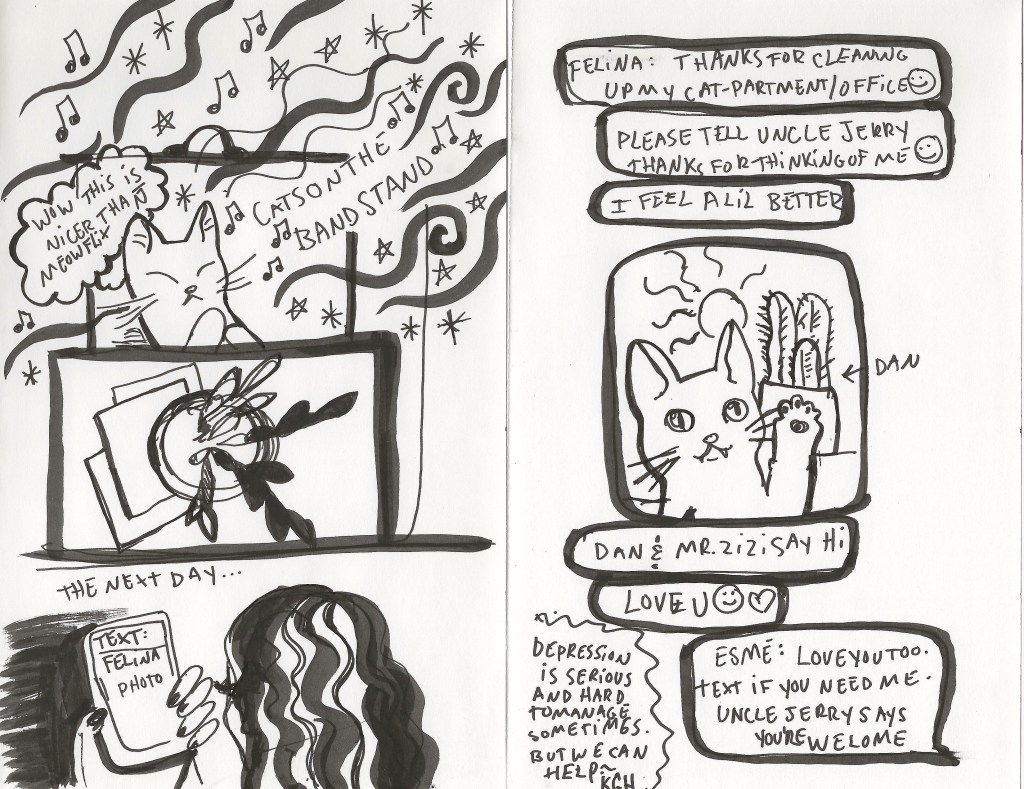 WOW THIS IS
NICER THAN
MEOWFLIX
CATS ON THE
BAND STAND
THE NEXT DAY...
TEXT:
FELINA
PHOTO
FELINA: THANKS FOR CLEANING
UP MY CAT-PARTMENT/OFFICE
PLEASE TELL UNCLE JERRY
THANKS FOR THINKING OF ME
I FEEL A LIL BETTER
DAN
DAN & MR. ZIZI SAY HI
LOVE U
DEPRESSION
IS SERIOUS
AND HARD
TO MANAGE
SOMETIMES.
BUT WE CAN
HELP~
KGH
ESME: LOVE YOU TOO.
TEXT IF YOU NEED ME.
UNCLE JERRY SAYS
YOU'RE WELOME